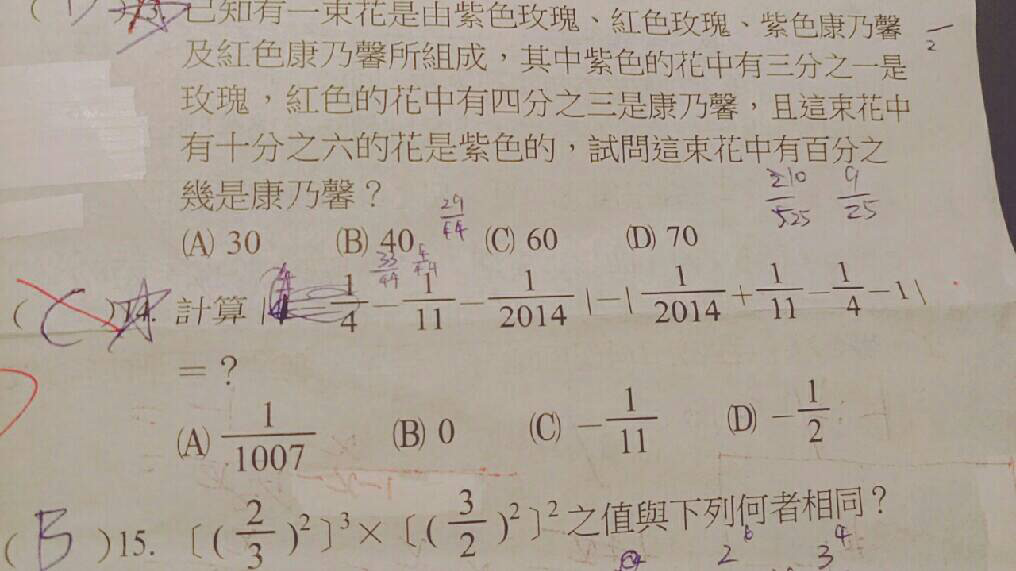 已知有一束花是由紫色玫瑰、紅色玫瑰、紫色康乃馨
及紅色康乃馨所組成，其中紫色的花中有三分之一是
玫瑰，紅色的花中有四分之三是康乃馨，且這束花中
有十分之六的花是紫色的，試問這束花中有百分之
幾是康乃馨？
210/525 9/25
29/44
(A) 30 (B) 40 (C) 60 (D) 70
33/44 4/44
( C )14. 計算 | 1/4 - 1/11 - 1/2014 | - | 1/2014 + 1/11 - 1/4 - 1 |
= ?
(A) 1/1007 (B) 0 (C) - 1/11 (D) - 1/2
( B )15. 〔( 2/3 )²〕³ × 〔( 3/2 )²〕² 之值與下列何者相同？
2⁶ 3⁴